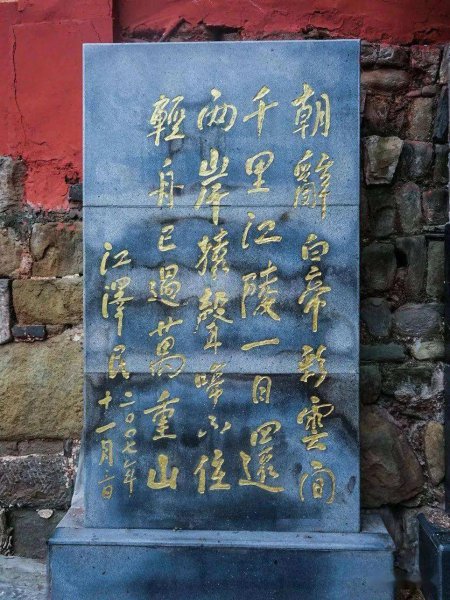 朝辭白帝彩雲間
千里江陵一日還
兩岸猿聲啼不住
輕舟已過萬重山
江澤民
二〇〇七年
十一月日